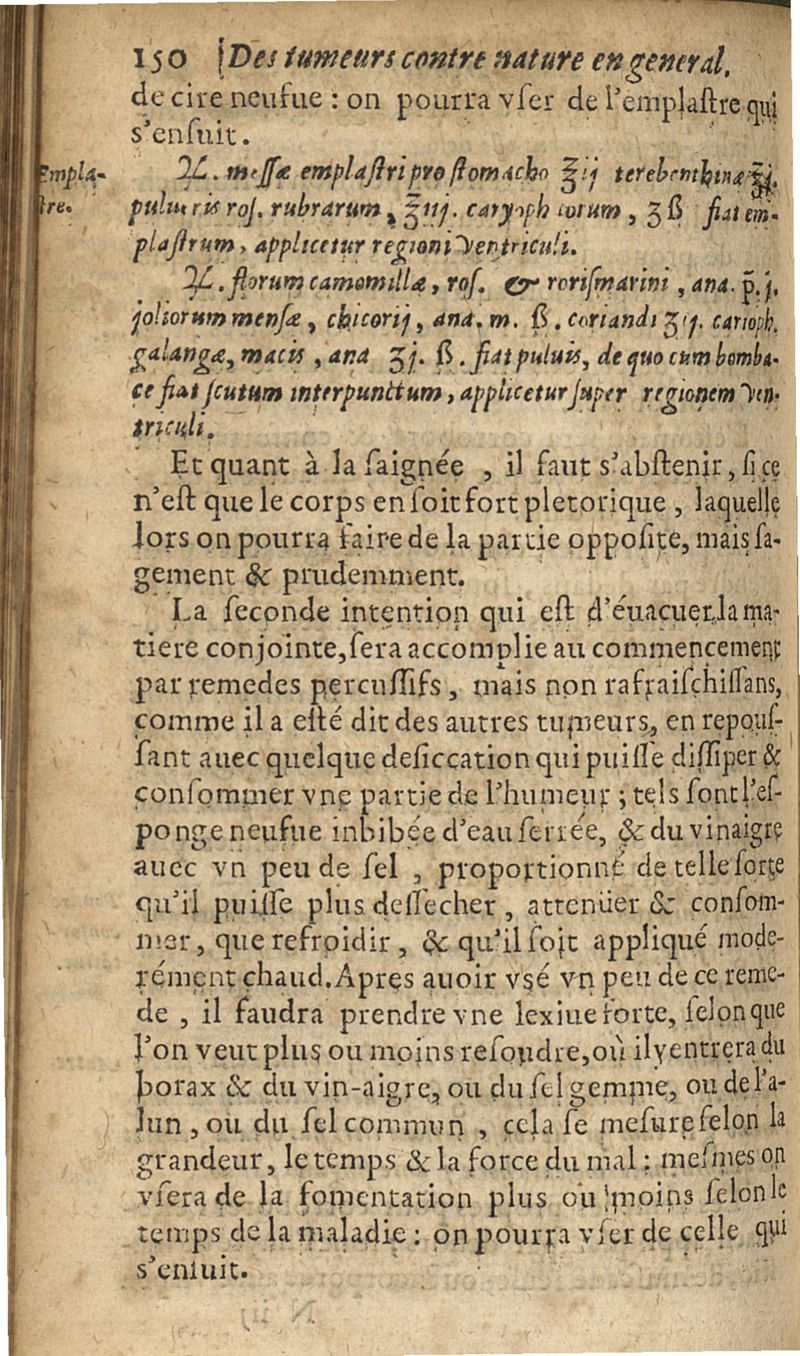 150 Des tumeurs contre nature en general.
de cire neufue : on pourra vſer de l'emplaſtre qui
s'enſuit.
Empla-
ſtre.
♃. meſſæ emplaſtri pro ſtomacho ʒij terebenthinæ ʒj.
pulueris roſ. rubrarum, ʒiij. caryophilorum, ʒ ß fiat em-
plaſtrum, applicetur regioni ventriculi.
♃. florum camomillæ, roſ. & roriſmarini, ana. p. j.
foliorum menſæ, chicorij, ana. m. ß. coriandi ʒij. carioph.
galangæ, macis, ana ʒj. ß. fiat puluis, de quo cum bomba-
ce fiat ſcutum interpunctum, applicetur ſuper regionem ven-
triculi.
Et quant à la ſaignée, il faut s'abſtenir, ſi ce
n'eſt que le corps en ſoit fort pletorique, laquelle
lors on pourra faire de la partie oppoſite, mais ſa-
gement & prudemment.
La ſeconde intention qui eſt d'éuacuer la ma-
tiere conjointe, ſera accomplie au commencement
par remedes percuſſifs, mais non rafraiſchiſſans,
comme il a eſté dit des autres tumeurs, en repouſ-
ſant auec quelque deſiccation qui puiſſe diſſiper &
conſommer vne partie de l'humeur ; tels ſont l'eſ-
ponge neufue inbibée d'eau ferrée, & du vinaigre
auec vn peu de ſel, proportionné de telle ſorte
qu'il puiſſe plus deſſecher, attenüer & conſom-
mer, que refroidir, & qu'il ſoit appliqué mode-
rément chaud. Apres auoir vsé vn peu de ce reme-
de, il faudra prendre vne lexiue forte, ſelon que
l'on veut plus ou moins reſoudre, où il y entrera du
borax & du vin-aigre, ou du ſel gemme, ou de l'a-
lun, ou du ſel commun, cela ſe meſure ſelon la
grandeur, le temps & la force du mal : meſmes on
vſera de la fomentation plus ou moins ſelon le
temps de la maladie : on pourra vſer de celle qui
s'enſuit.